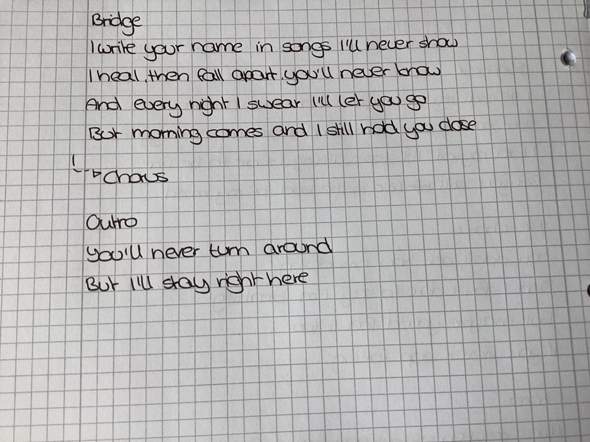 Bridge
I write your name in songs I'll never show
I heal, then fall apart, you'll never know
And every night I swear I'll let you go
But morning comes and I still hold you close
Chorus
Outro
You'll never turn around
But I'll stay right here